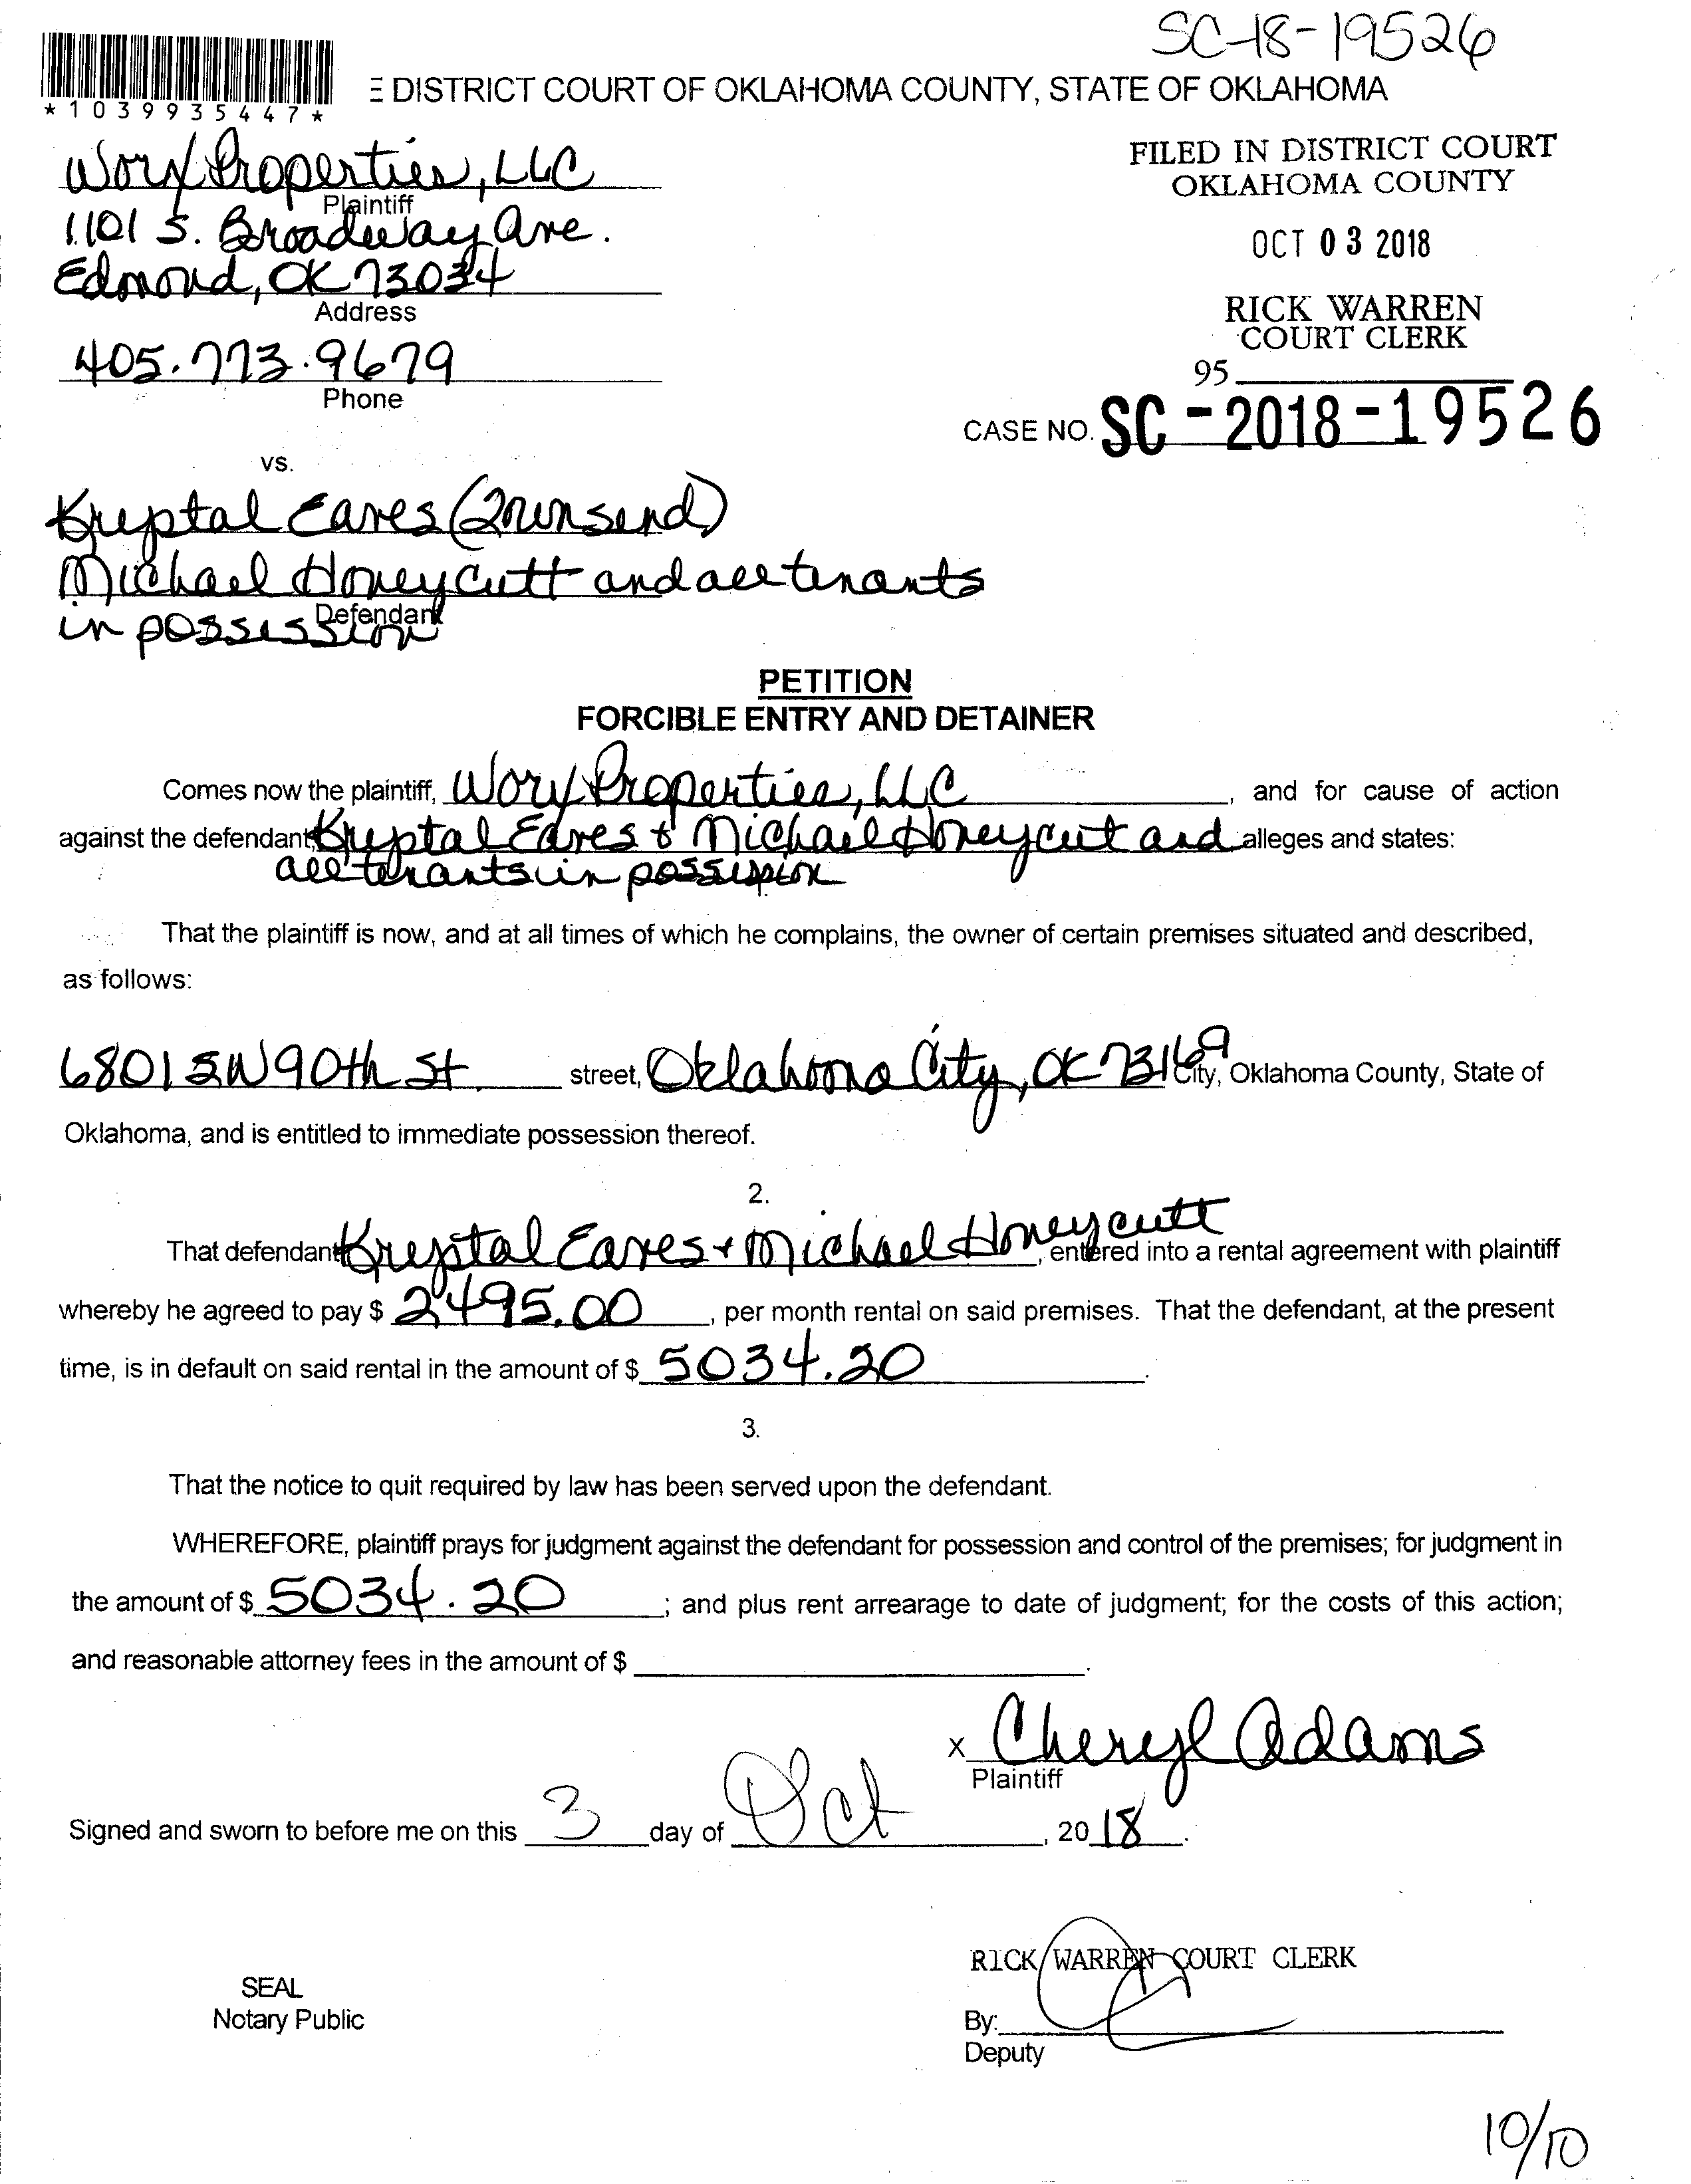 SC-18-19526
*1039935447*
E DISTRICT COURT OF OKLAHOMA COUNTY, STATE OF OKLAHOMA
Worx Properties, LLC
Plaintiff
1101 S. Broadway Ave.
Edmond, OK 73034
Address
405.773.9679
Phone
FILED IN DISTRICT COURT
OKLAHOMA COUNTY
OCT 03 2018
RICK WARREN
COURT CLERK
95
CASE NO. SC-2018-19526
vs.
Krystal Eaves (Townsend)
Michael Honeycutt and all tenants
Defendant
in possession
PETITION
FORCIBLE ENTRY AND DETAINER
Comes now the plaintiff, Worx Properties, LLC, and for cause of action
against the defendant, Krystal Eaves & Michael Honeycutt and alleges and states:
all tenants in possession
That the plaintiff is now, and at all times of which he complains, the owner of certain premises situated and described,
as follows:
6801 SW 90th St. street, Oklahoma City, OK 73169 City, Oklahoma County, State of
Oklahoma, and is entitled to immediate possession thereof.
2.
That defendant Krystal Eaves + Michael Honeycutt, entered into a rental agreement with plaintiff
whereby he agreed to pay $ 2495.00, per month rental on said premises. That the defendant, at the present
time, is in default on said rental in the amount of $ 5034.20.
3.
That the notice to quit required by law has been served upon the defendant.
WHEREFORE, plaintiff prays for judgment against the defendant for possession and control of the premises; for judgment in
the amount of $ 5034.20; and plus rent arrearage to date of judgment; for the costs of this action;
and reasonable attorney fees in the amount of $ .
x Cheryl Adams
Plaintiff
Signed and sworn to before me on this 3 day of Oct, 2018.
RICK WARREN COURT CLERK
SEAL
Notary Public
By:
Deputy
10/10